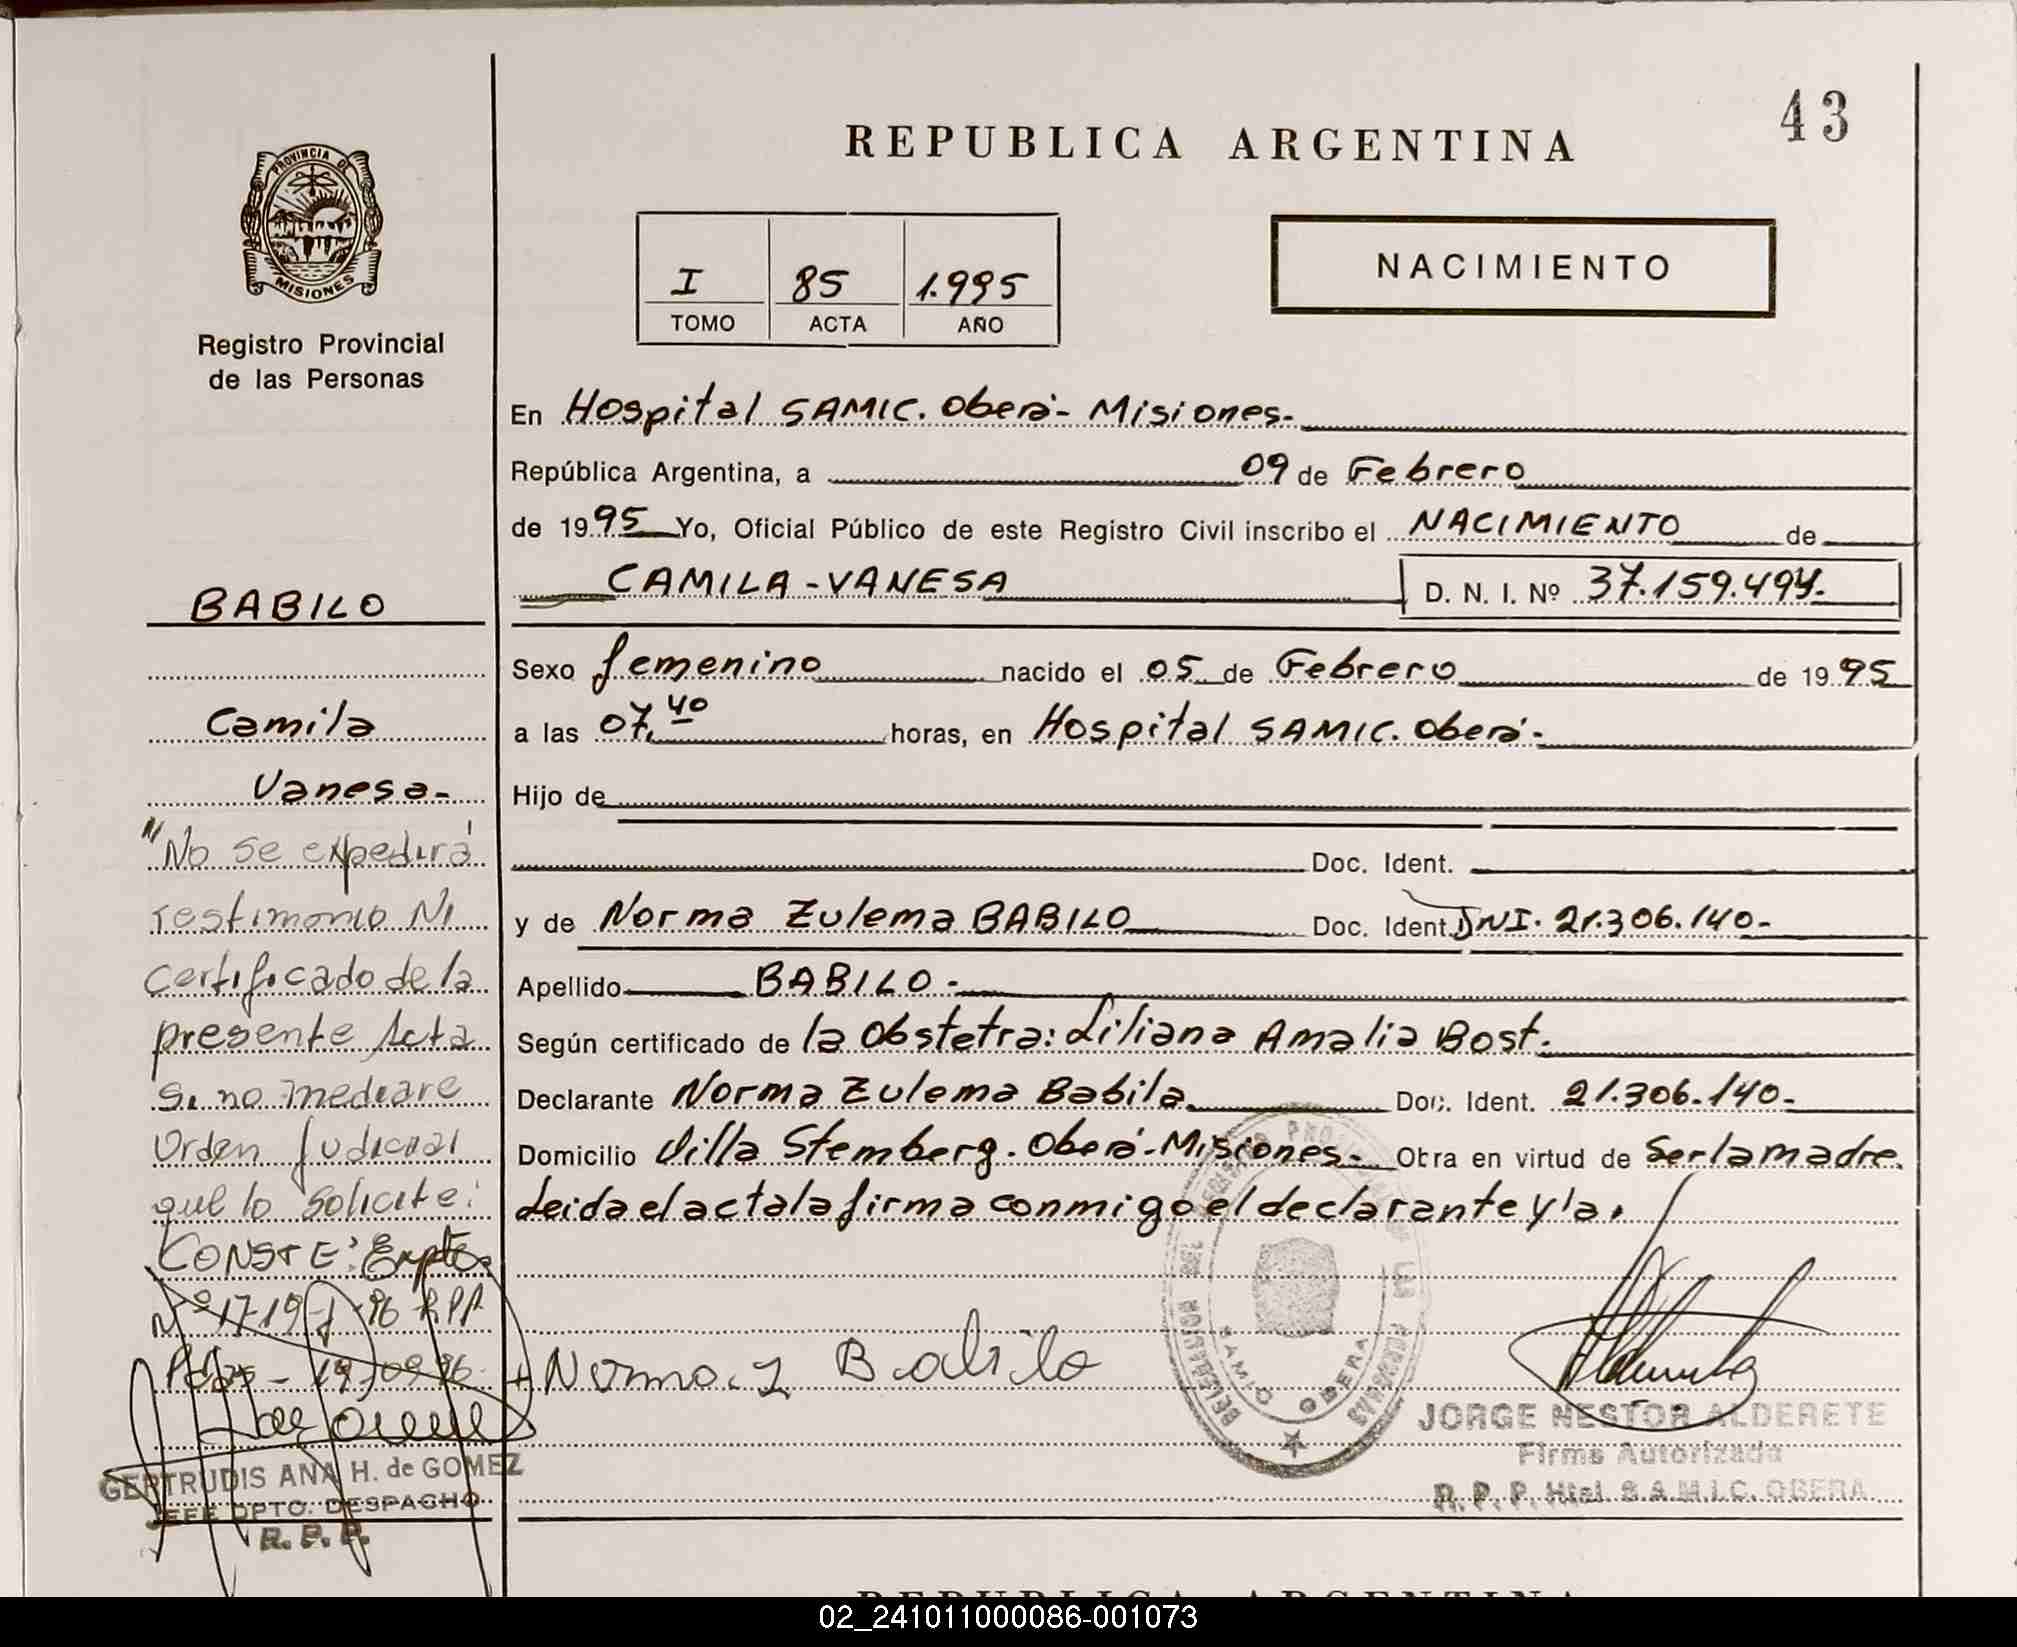 43
REPUBLICA ARGENTINA
PROVINCIA DE
MISIONES
Registro Provincial
de las Personas
I 85 1.995
TOMO ACTA AÑO
NACIMIENTO
En Hospital SAMIC. Oberá - Misiones.
República Argentina, a 09 de Febrero
de 1995 Yo, Oficial Público de este Registro Civil inscribo el NACIMIENTO de
CAMILA - VANESA D. N. I. Nº 37.159.494.
Sexo femenino nacido el 05 de Febrero de 1995
a las 07.40 horas, en Hospital SAMIC. Oberá.
Hijo de
Doc. Ident.
y de Norma Zulema BABILO Doc. Ident. DNI. 21.306.140-
Apellido BABILO -
Según certificado de la Obstetra: Liliana Amalia Bost.
Declarante Norma Zulema Babila Doc. Ident. 21.306.140-
Domicilio Villa Stemberg. Oberá - Misiones. Obra en virtud de Ser la madre.
Leida el acta la firma conmigo el declarante y la.
Norma. Z Babilo
SAMIC OBERA
JORGE NESTOR ALDERETE
Firma Autorizada
R. P. P. Htal S.A.M.I.C. OBERA
BABILO
Camila
Vanesa-
"No se expedirá
Testimonio Ni
Certificado de la
presente Acta
Si no mediare
Orden Judicial
que lo solicite.
CONSTE: Expte
Nº 1719-J-96 RPP
Pdas - 19-09-96.
GERTRUDIS ANA H. de GOMEZ
JEFE DPTO. DESPACHO
R. P. P.
REPUBLICA ARGENTINA
02_241011000086-001073